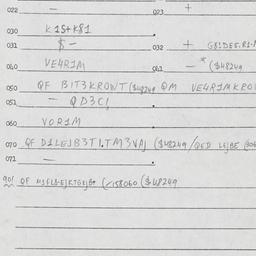 022 — 023 +
030 K1S++K81
031 $ -
032 + G81DE5.R1-
040 VE4R1M 041 - * ($48249
050 QF B1T3KROWT ($48249 QM VE4R1MKRO
051 - QD3C!
060 VOR1M
070 QF D1LEJB3T1.TM3VAJ ($48249/QED LEJBE
071 —
901 QF (/158060 ($48249